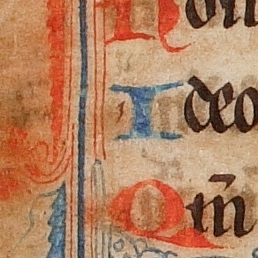 Non
Ideo
Qm̄